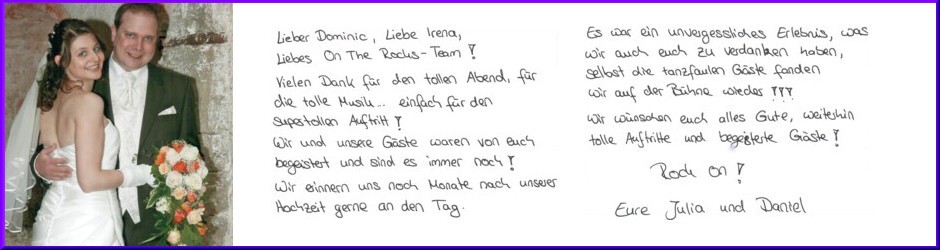 Lieber Dominic, Liebe Irena,
Liebes On The Rocks-Team!
Vielen Dank für den tollen Abend, für
die tolle Musik... einfach für den
supertollen Auftritt!
Wir und unsere Gäste waren von euch
begeistert und sind es immer noch!
Wir erinnern uns noch Monate nach unserer
Hochzeit gerne an den Tag.
Es war ein unvergessliches Erlebnis, was
wir auch euch zu verdanken haben,
selbst die tanzfaulen Gäste fanden
wir auf der Bühne wieder!!!
Wir wünschen euch alles Gute, weiterhin
tolle Auftritte und begeisterte Gäste!
Rock on!
Eure Julia und Daniel